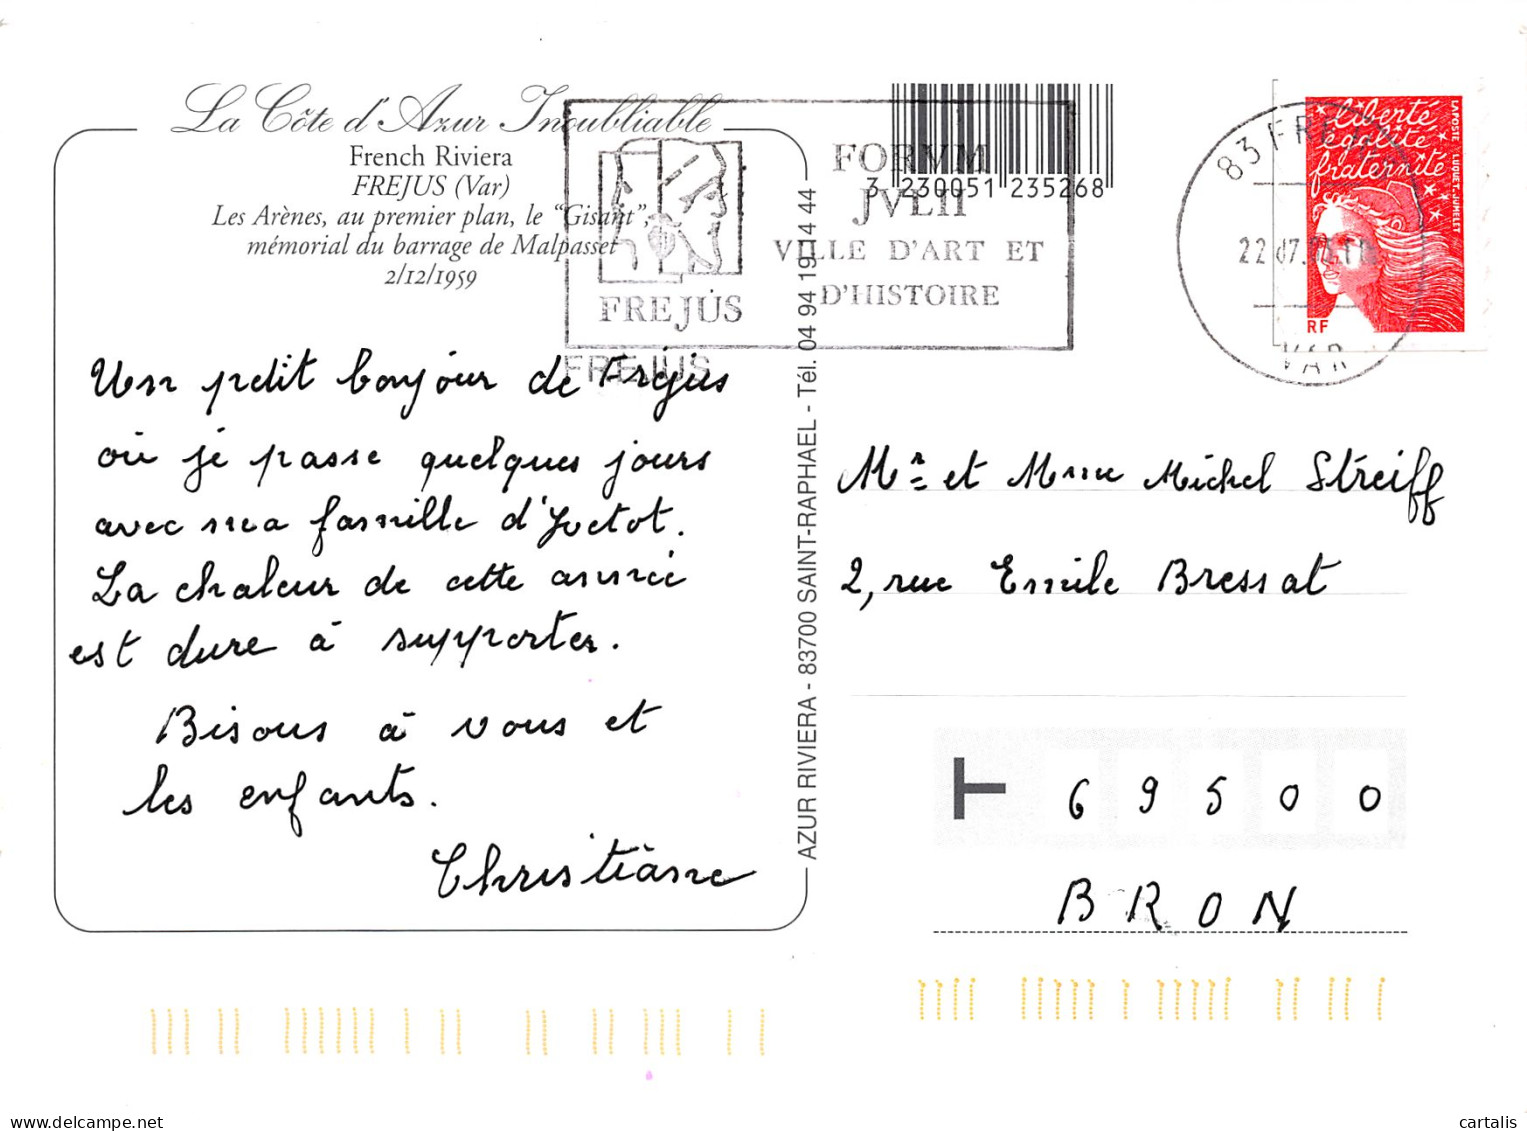 La Côte d'Azur Inoubliable
French Riviera
FREJUS (Var)
Les Arènes, au premier plan, le "Gisant",
mémorial du barrage de Malpasset
2/12/1959
Un petit bonjour de Frejus
où je passe quelques jours
avec ma famille d'Yvetot.
La chaleur de cette année
est dure à supporter.
Bisous à vous et
les enfants.
Christiane
FREJUS
FORVM
JVLII
VILLE D'ART ET
D'HISTOIRE
FREJUS
3 230051 235268
AZUR RIVIERA - 83700 SAINT-RAPHAEL - Tél. 04 94 19 14 44
83 FREJUS
22 07
VAR
liberté
égalité
fraternité
LA POSTE LUQUET-JUMELET
RF
Mr et Mme Michel Streiff
2, rue Emile Bressat
T 6 9 5 0 0
BRON
cartalis
delcampe.net